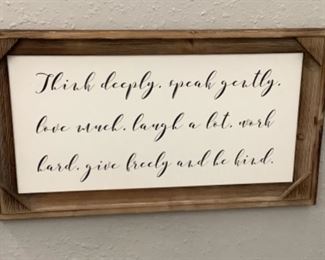 Think deeply. speak gently.
love much. laugh a lot. work
hard. give freely and be kind.